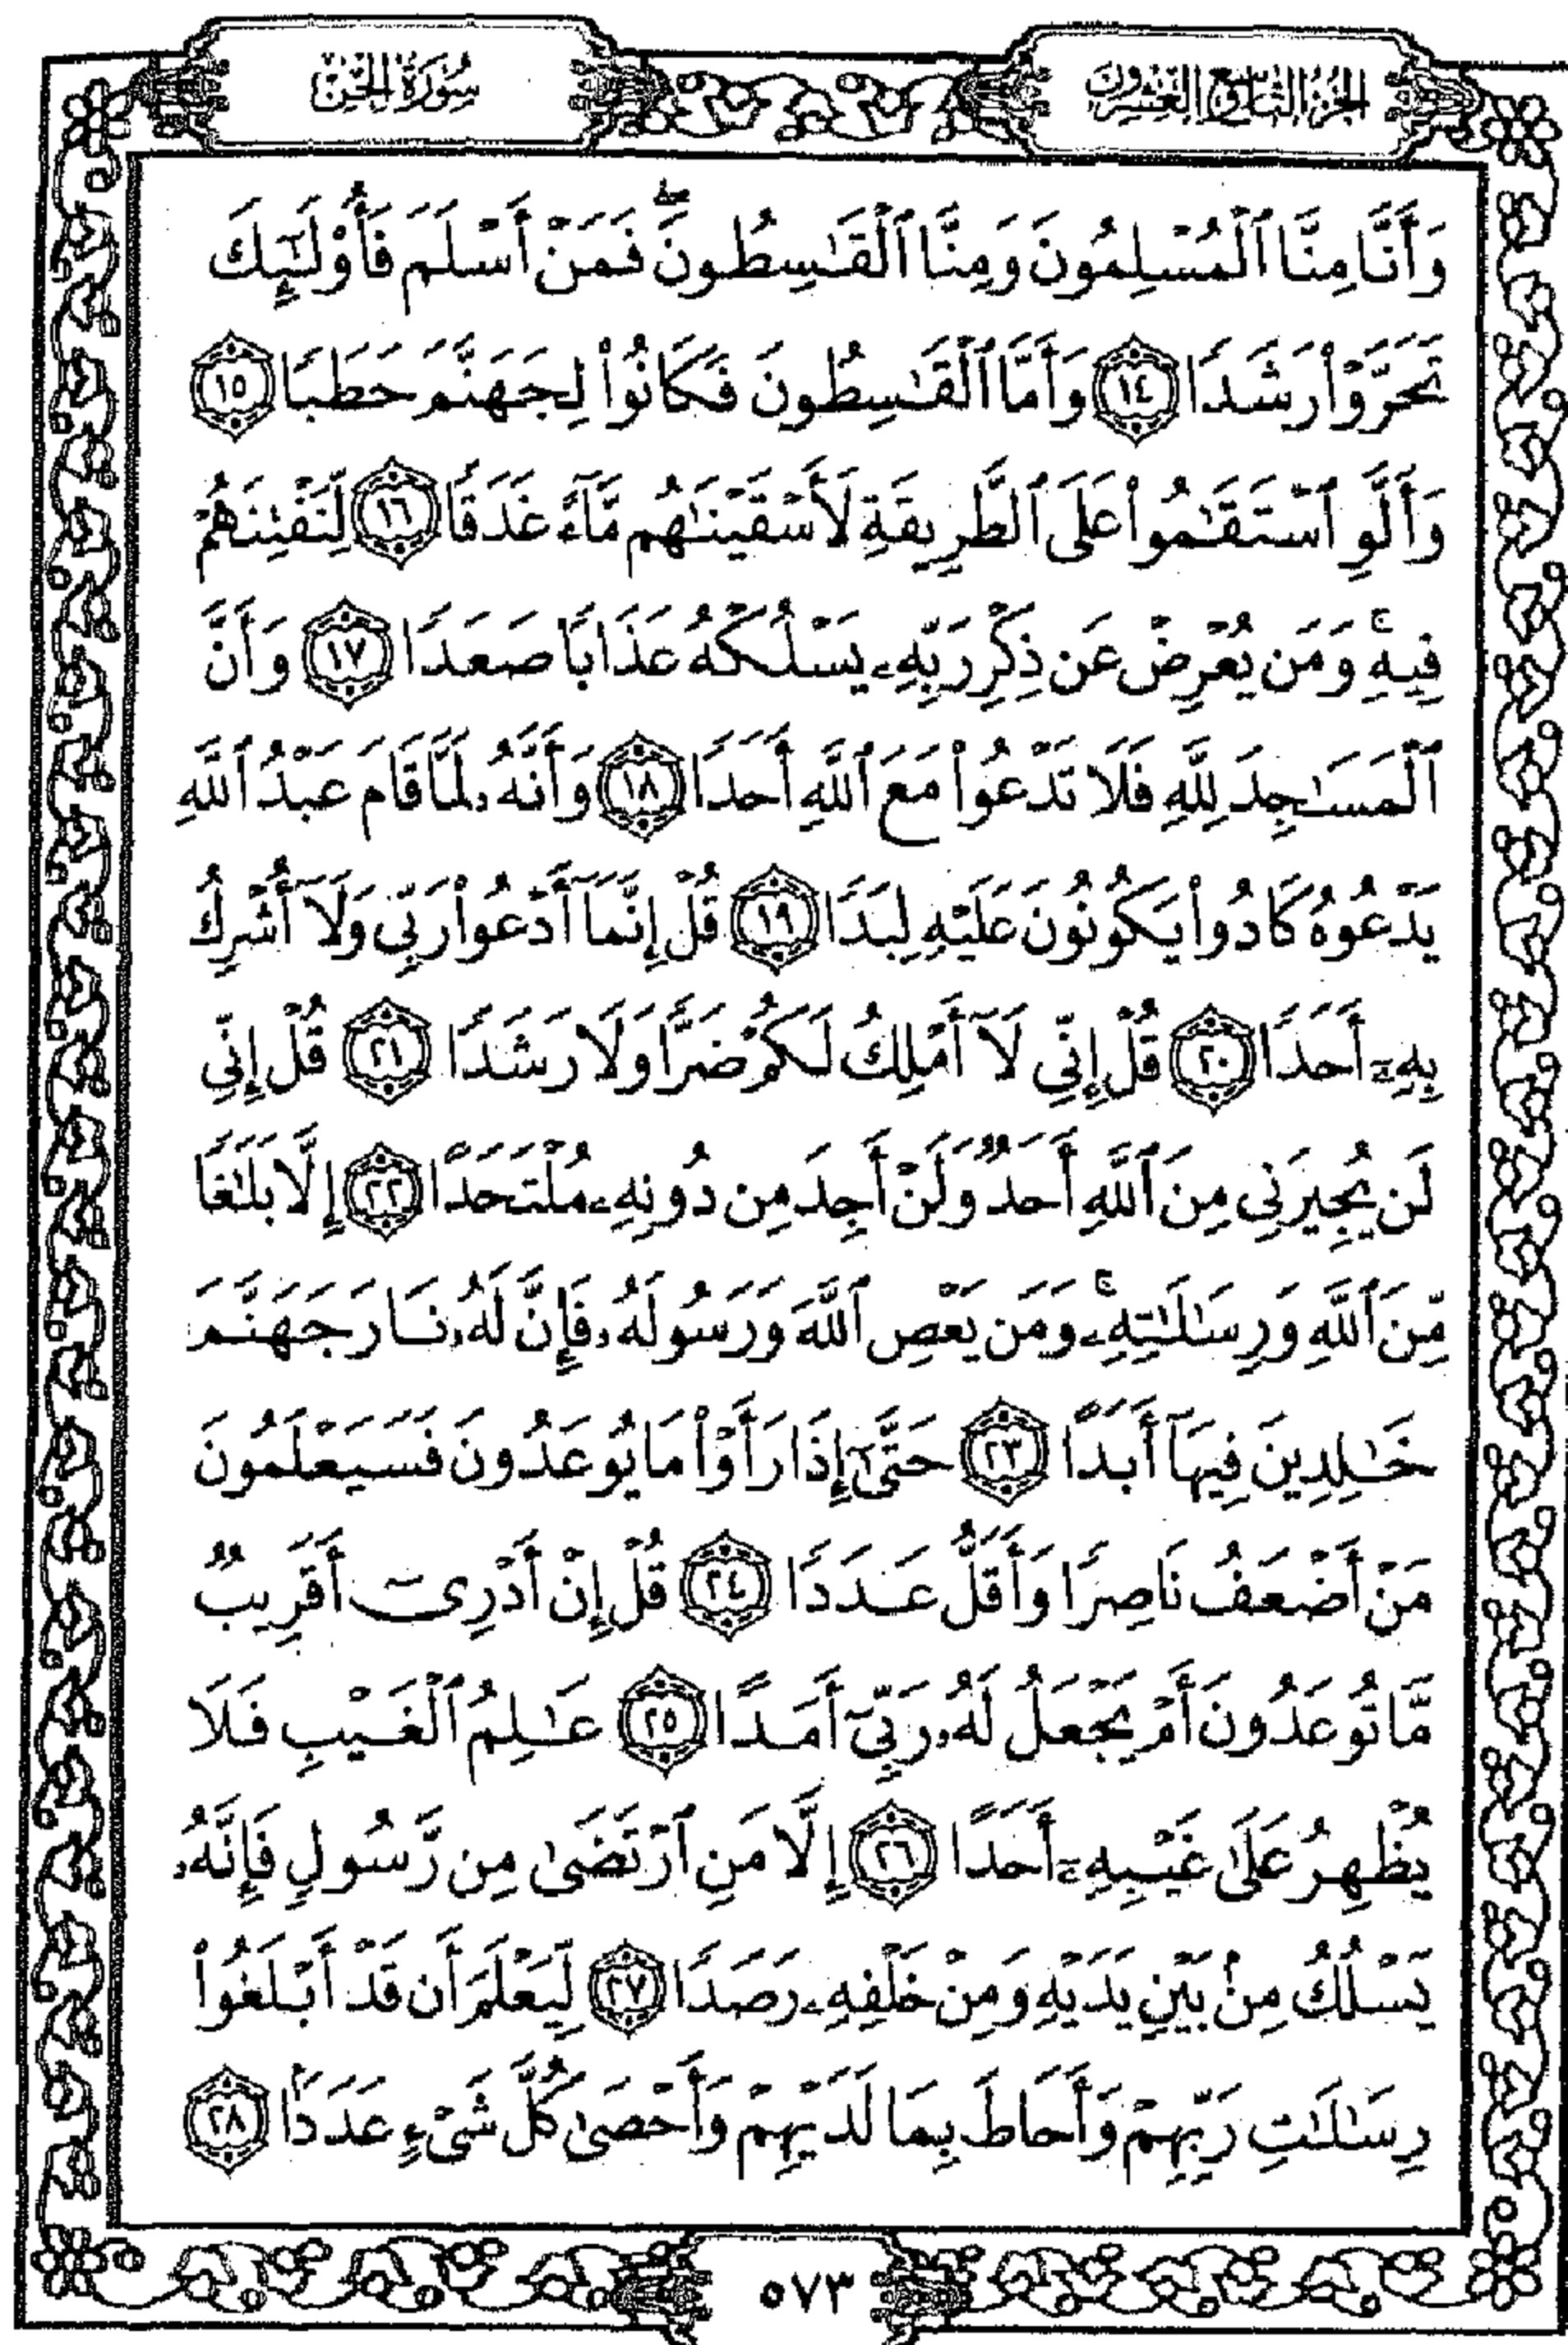 الجزء التاسع والعشرون
سورة الجن
وَأَنَّا مِنَّا ٱلْمُسْلِمُونَ وَمِنَّا ٱلْقَٰسِطُونَ ۖ فَمَنْ أَسْلَمَ فَأُو۟لَٰٓئِكَ
تَحَرَّوْا۟ رَشَدًا ١٤ وَأَمَّا ٱلْقَٰسِطُونَ فَكَانُوا۟ لِجَهَنَّمَ حَطَبًا ١٥
وَأَلَّوِ ٱسْتَقَٰمُوا۟ عَلَى ٱلطَّرِيقَةِ لَأَسْقَيْنَٰهُم مَّآءً غَدَقًا ١٦ لِّنَفْتِنَهُمْ
فِيهِ ۚ وَمَن يُعْرِضْ عَن ذِكْرِ رَبِّهِۦ يَسْلُكْهُ عَذَابًا صَعَدًا ١٧ وَأَنَّ
ٱلْمَسَٰجِدَ لِلَّهِ فَلَا تَدْعُوا۟ مَعَ ٱللَّهِ أَحَدًا ١٨ وَأَنَّهُۥ لَمَّا قَامَ عَبْدُ ٱللَّهِ
يَدْعُوهُ كَادُوا۟ يَكُونُونَ عَلَيْهِ لِبَدًا ١٩ قُلْ إِنَّمَآ أَدْعُوا۟ رَبِّى وَلَآ أُشْرِكُ
بِهِۦٓ أَحَدًا ٢٠ قُلْ إِنِّى لَآ أَمْلِكُ لَكُمْ ضَرًّا وَلَا رَشَدًا ٢١ قُلْ إِنِّى
لَن يُجِيرَنِى مِنَ ٱللَّهِ أَحَدٌ وَلَنْ أَجِدَ مِن دُونِهِۦ مُلْتَحَدًا ٢٢ إِلَّا بَلَٰغًا
مِّنَ ٱللَّهِ وَرِسَٰلَٰتِهِۦ ۚ وَمَن يَعْصِ ٱللَّهَ وَرَسُولَهُۥ فَإِنَّ لَهُۥ نَارَ جَهَنَّمَ
خَٰلِدِينَ فِيهَآ أَبَدًا ٢٣ حَتَّىٰٓ إِذَا رَأَوْا۟ مَا يُوعَدُونَ فَسَيَعْلَمُونَ
مَنْ أَضْعَفُ نَاصِرًا وَأَقَلُّ عَدَدًا ٢٤ قُلْ إِنْ أَدْرِىٓ أَقَرِيبٌ
مَّا تُوعَدُونَ أَمْ يَجْعَلُ لَهُۥ رَبِّىٓ أَمَدًا ٢٥ عَٰلِمُ ٱلْغَيْبِ فَلَا
يُظْهِرُ عَلَىٰ غَيْبِهِۦٓ أَحَدًا ٢٦ إِلَّا مَنِ ٱرْتَضَىٰ مِن رَّسُولٍ فَإِنَّهُۥ
يَسْلُكُ مِنۢ بَيْنِ يَدَيْهِ وَمِنْ خَلْفِهِۦ رَصَدًا ٢٧ لِّيَعْلَمَ أَن قَدْ أَبْلَغُوا۟
رِسَٰلَٰتِ رَبِّهِمْ وَأَحَاطَ بِمَا لَدَيْهِمْ وَأَحْصَىٰ كُلَّ شَىْءٍ عَدَدًۢا ٢٨
٥٧٣